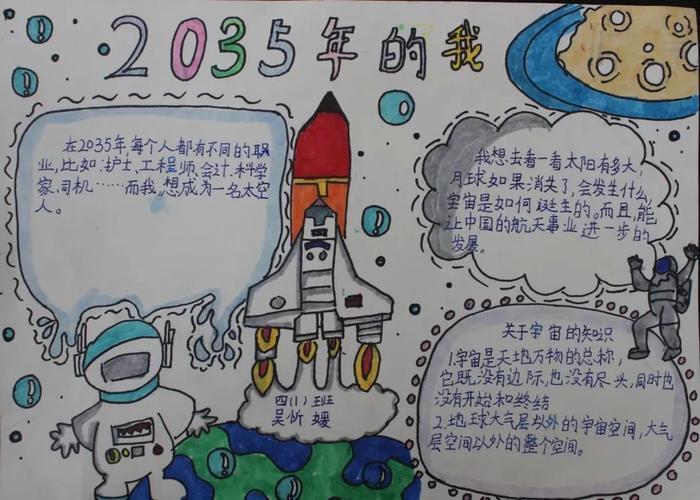 2035年的我
在2035年,每个人都有不同的职
业,比如:护士、工程师、会计、科学
家、司机……而我,想成为一名太空
人。
我想去看一看太阳有多大,
月球如果消失了,会发生什么,
宇宙是如何诞生的。而且,能
让中国的航天事业进一步的
发展。
四(1)班
吴忻媛
关于宇宙的知识
1.宇宙是天地万物的总称,
它既没有边际,也没有尽头,同时也
没有开始和终结
2.地球大气层以外的宇宙空间,大气
层空间以外的整个空间。